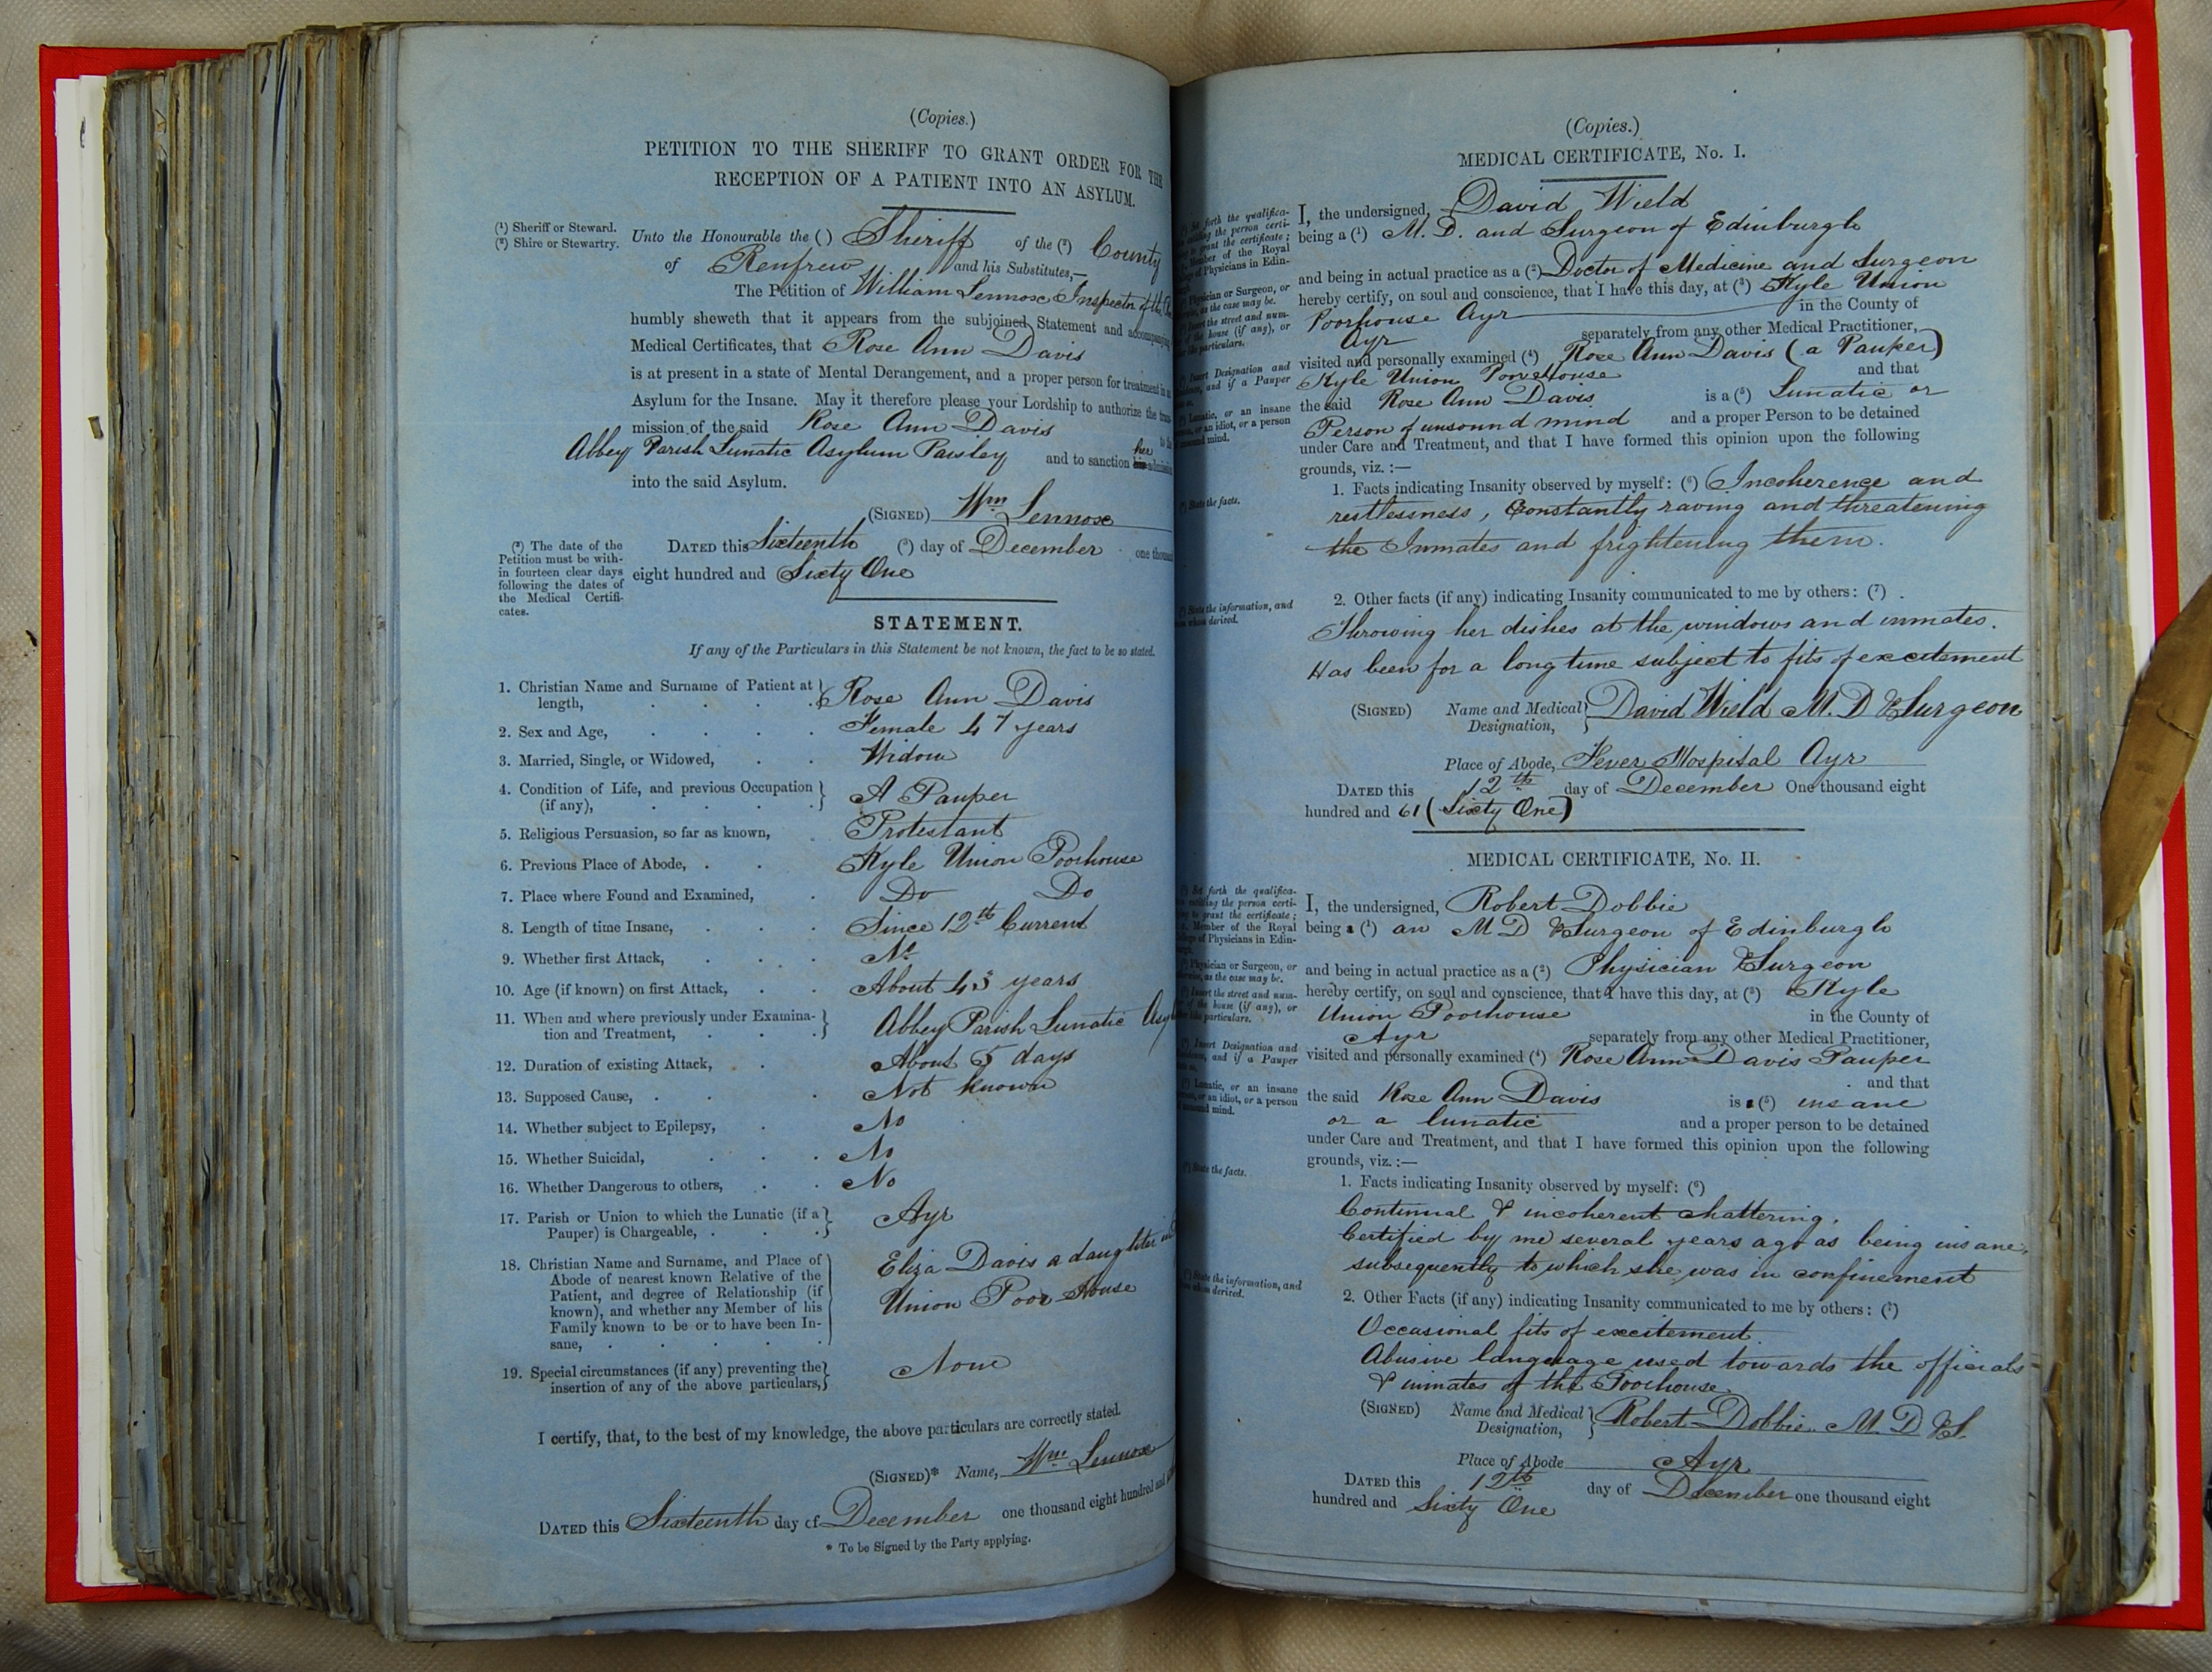 (Copies.)
PETITION TO THE SHERIFF TO GRANT ORDER FOR THE
RECEPTION OF A PATIENT INTO AN ASYLUM.
(1) Sheriff or Steward.
(2) Shire or Stewartry.
Unto the Honourable the ( ) Sheriff of the (2) County
of Renfrew and his Substitutes,—
The Petition of William Lennox Inspector of the
humbly sheweth that it appears from the subjoined Statement and accompanying
Medical Certificates, that Rose Ann Davis
is at present in a state of Mental Derangement, and a proper person for treatment in an
Asylum for the Insane. May it therefore please your Lordship to authorize the trans-
mission of the said Rose Ann Davis to the
Abbey Parish Lunatic Asylum Paisley and to sanction his her admission
into the said Asylum.
(SIGNED) Wm Lennox
(3) The date of the
Petition must be with-
in fourteen clear days
following the dates of
the Medical Certifi-
cates.
DATED this Sixteenth (3) day of December one thousand
eight hundred and Sixty One
STATEMENT.
If any of the Particulars in this Statement be not known, the fact to be so stated.
1. Christian Name and Surname of Patient at length, Rose Ann Davis
2. Sex and Age, Female 47 years
3. Married, Single, or Widowed, Widow
4. Condition of Life, and previous Occupation (if any), A Pauper
5. Religious Persuasion, so far as known, Protestant
6. Previous Place of Abode, Kyle Union Poorhouse
7. Place where Found and Examined, Do Do
8. Length of time Insane, Since 12th Current
9. Whether first Attack, No
10. Age (if known) on first Attack, About 43 years
11. When and where previously under Examina-
tion and Treatment, Abbey Parish Lunatic Asy
12. Duration of existing Attack, About 5 days
13. Supposed Cause, Not known
14. Whether subject to Epilepsy, No
15. Whether Suicidal, No
16. Whether Dangerous to others, No
17. Parish or Union to which the Lunatic (if a
Pauper) is Chargeable, Ayr
18. Christian Name and Surname, and Place of
Abode of nearest known Relative of the
Patient, and degree of Relationship (if
known), and whether any Member of his
Family known to be or to have been In-
sane,
Eliza Davis a daughter in
Union Poor House
19. Special circumstances (if any) preventing the
insertion of any of the above particulars, None
I certify, that, to the best of my knowledge, the above particulars are correctly stated.
(SIGNED)* Name, Wm Lennox
DATED this Sixteenth day of December one thousand eight hundred and
* To be Signed by the Party applying.
(Copies.)
MEDICAL CERTIFICATE, No. I.
I, the undersigned, David Wield
being a (1) M. D. and Surgeon of Edinburgh
and being in actual practice as a (2) Doctor of Medicine and Surgeon
hereby certify, on soul and conscience, that I have this day, at (3) Kyle Union
Poorhouse Ayr in the County of
Ayr separately from any other Medical Practitioner,
visited and personally examined (4) Rose Ann Davis (a Pauper)
Kyle Union Poorehouse and that
the said Rose Ann Davis is a (5) Lunatic or
Person of unsound mind and a proper Person to be detained
under Care and Treatment, and that I have formed this opinion upon the following
grounds, viz. :—
(6) State the facts.
1. Facts indicating Insanity observed by myself: (6) Incoherence and
restlessness, Constantly raving and threatening
the Inmates and frightening them.
2. Other facts (if any) indicating Insanity communicated to me by others: (7)
Throwing her dishes at the windows and inmates.
Has been for a long time subject to fits of excitement
(SIGNED) Name and Medical Designation, David Wield M. D & Surgeon
Place of Abode, Fever Hospital Ayr
DATED this 12th day of December One thousand eight
hundred and 61 (Sixty One)
MEDICAL CERTIFICATE, No. II.
I, the undersigned, Robert Dobbie
being a (1) an M D & Surgeon of Edinburgh
and being in actual practice as a (2) Physician & Surgeon
hereby certify, on soul and conscience, that I have this day, at (3) Kyle
Union Poorhouse in the County of
Ayr separately from any other Medical Practitioner,
visited and personally examined (4) Rose Ann Davis Pauper
and that
the said Rose Ann Davis is a (5) insane
or a lunatic and a proper person to be detained
under Care and Treatment, and that I have formed this opinion upon the following
grounds, viz. :—
1. Facts indicating Insanity observed by myself: (6)
Continual & incoherent chattering.
Certified by me several years ago as being insane,
subsequently to which she was in confinement
2. Other Facts (if any) indicating Insanity communicated to me by others: (7)
Occasional fits of excitement.
Abusive language used towards the officials
& inmates of the Poorhouse
(SIGNED) Name and Medical Designation, Robert Dobbie. M. D & S.
Place of Abode Ayr
DATED this 12th day of December one thousand eight
hundred and Sixty One